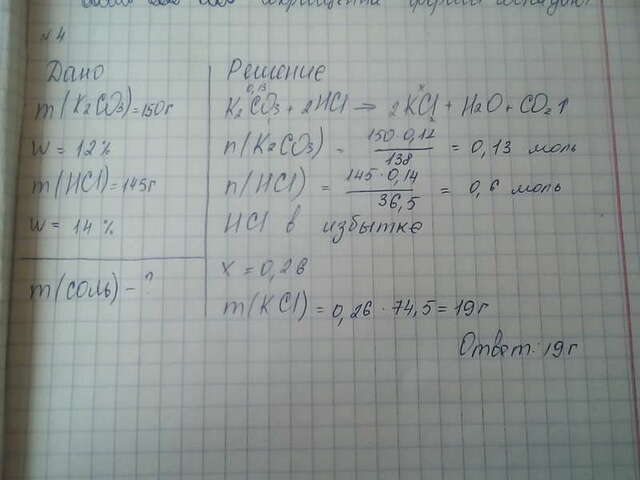 сокращённа форма
№4
Дано
m(K₂CO₃)=150г
w = 12%
m(HCl)=145г
w = 14%
m(соль) - ?
Решение
0,13 x
K₂CO₃ + 2HCl => 2KCl + H₂O + CO₂↑
n(K₂CO₃) = 150·0,12 / 138 = 0,13 моль
n(HCl) = 145·0,14 / 36,5 = 0,6 моль
HCl в избытке
x = 0,26
m(KCl) = 0,26 · 74,5 = 19г
Ответ: 19г